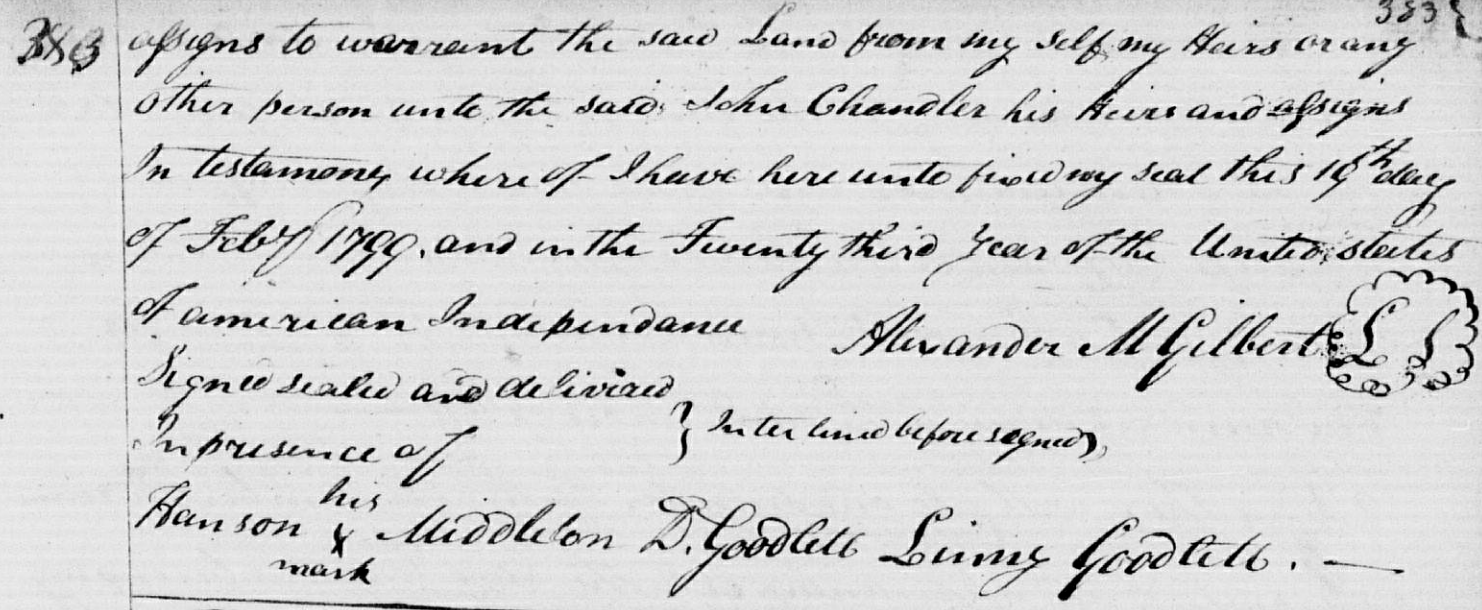 383
assigns to warrant the said Land from my self my Heirs or any
other person unto the said John Chandler his Heirs and assigns
In testamony where of I have here unto fixed my seal this day
of Feby 1799. and in the Twenty third year of the United states
of american Independance
Alexander McGilbert L S
Signed sealed and delivired
In presence of } Interlined before signed,
his
Hanson X Middleton D. Goodlett Linny Goodlett. —
mark